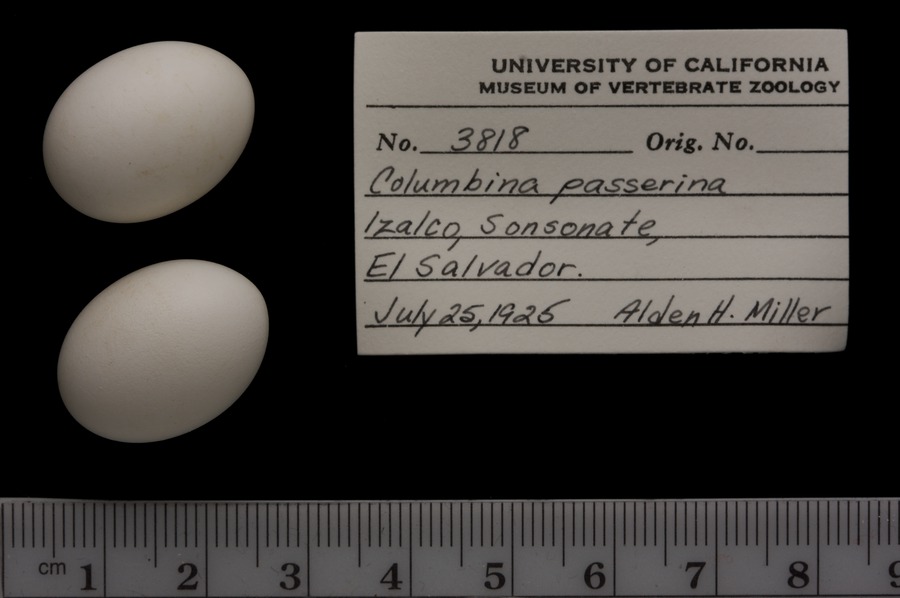 UNIVERSITY OF CALIFORNIA
MUSEUM OF VERTEBRATE ZOOLOGY
No. 3818 Orig. No.
Columbina passerina
Izalco, Sonsonate,
El Salvador.
July 25, 1925 Alden H. Miller
cm 1 2 3 4 5 6 7 8 9